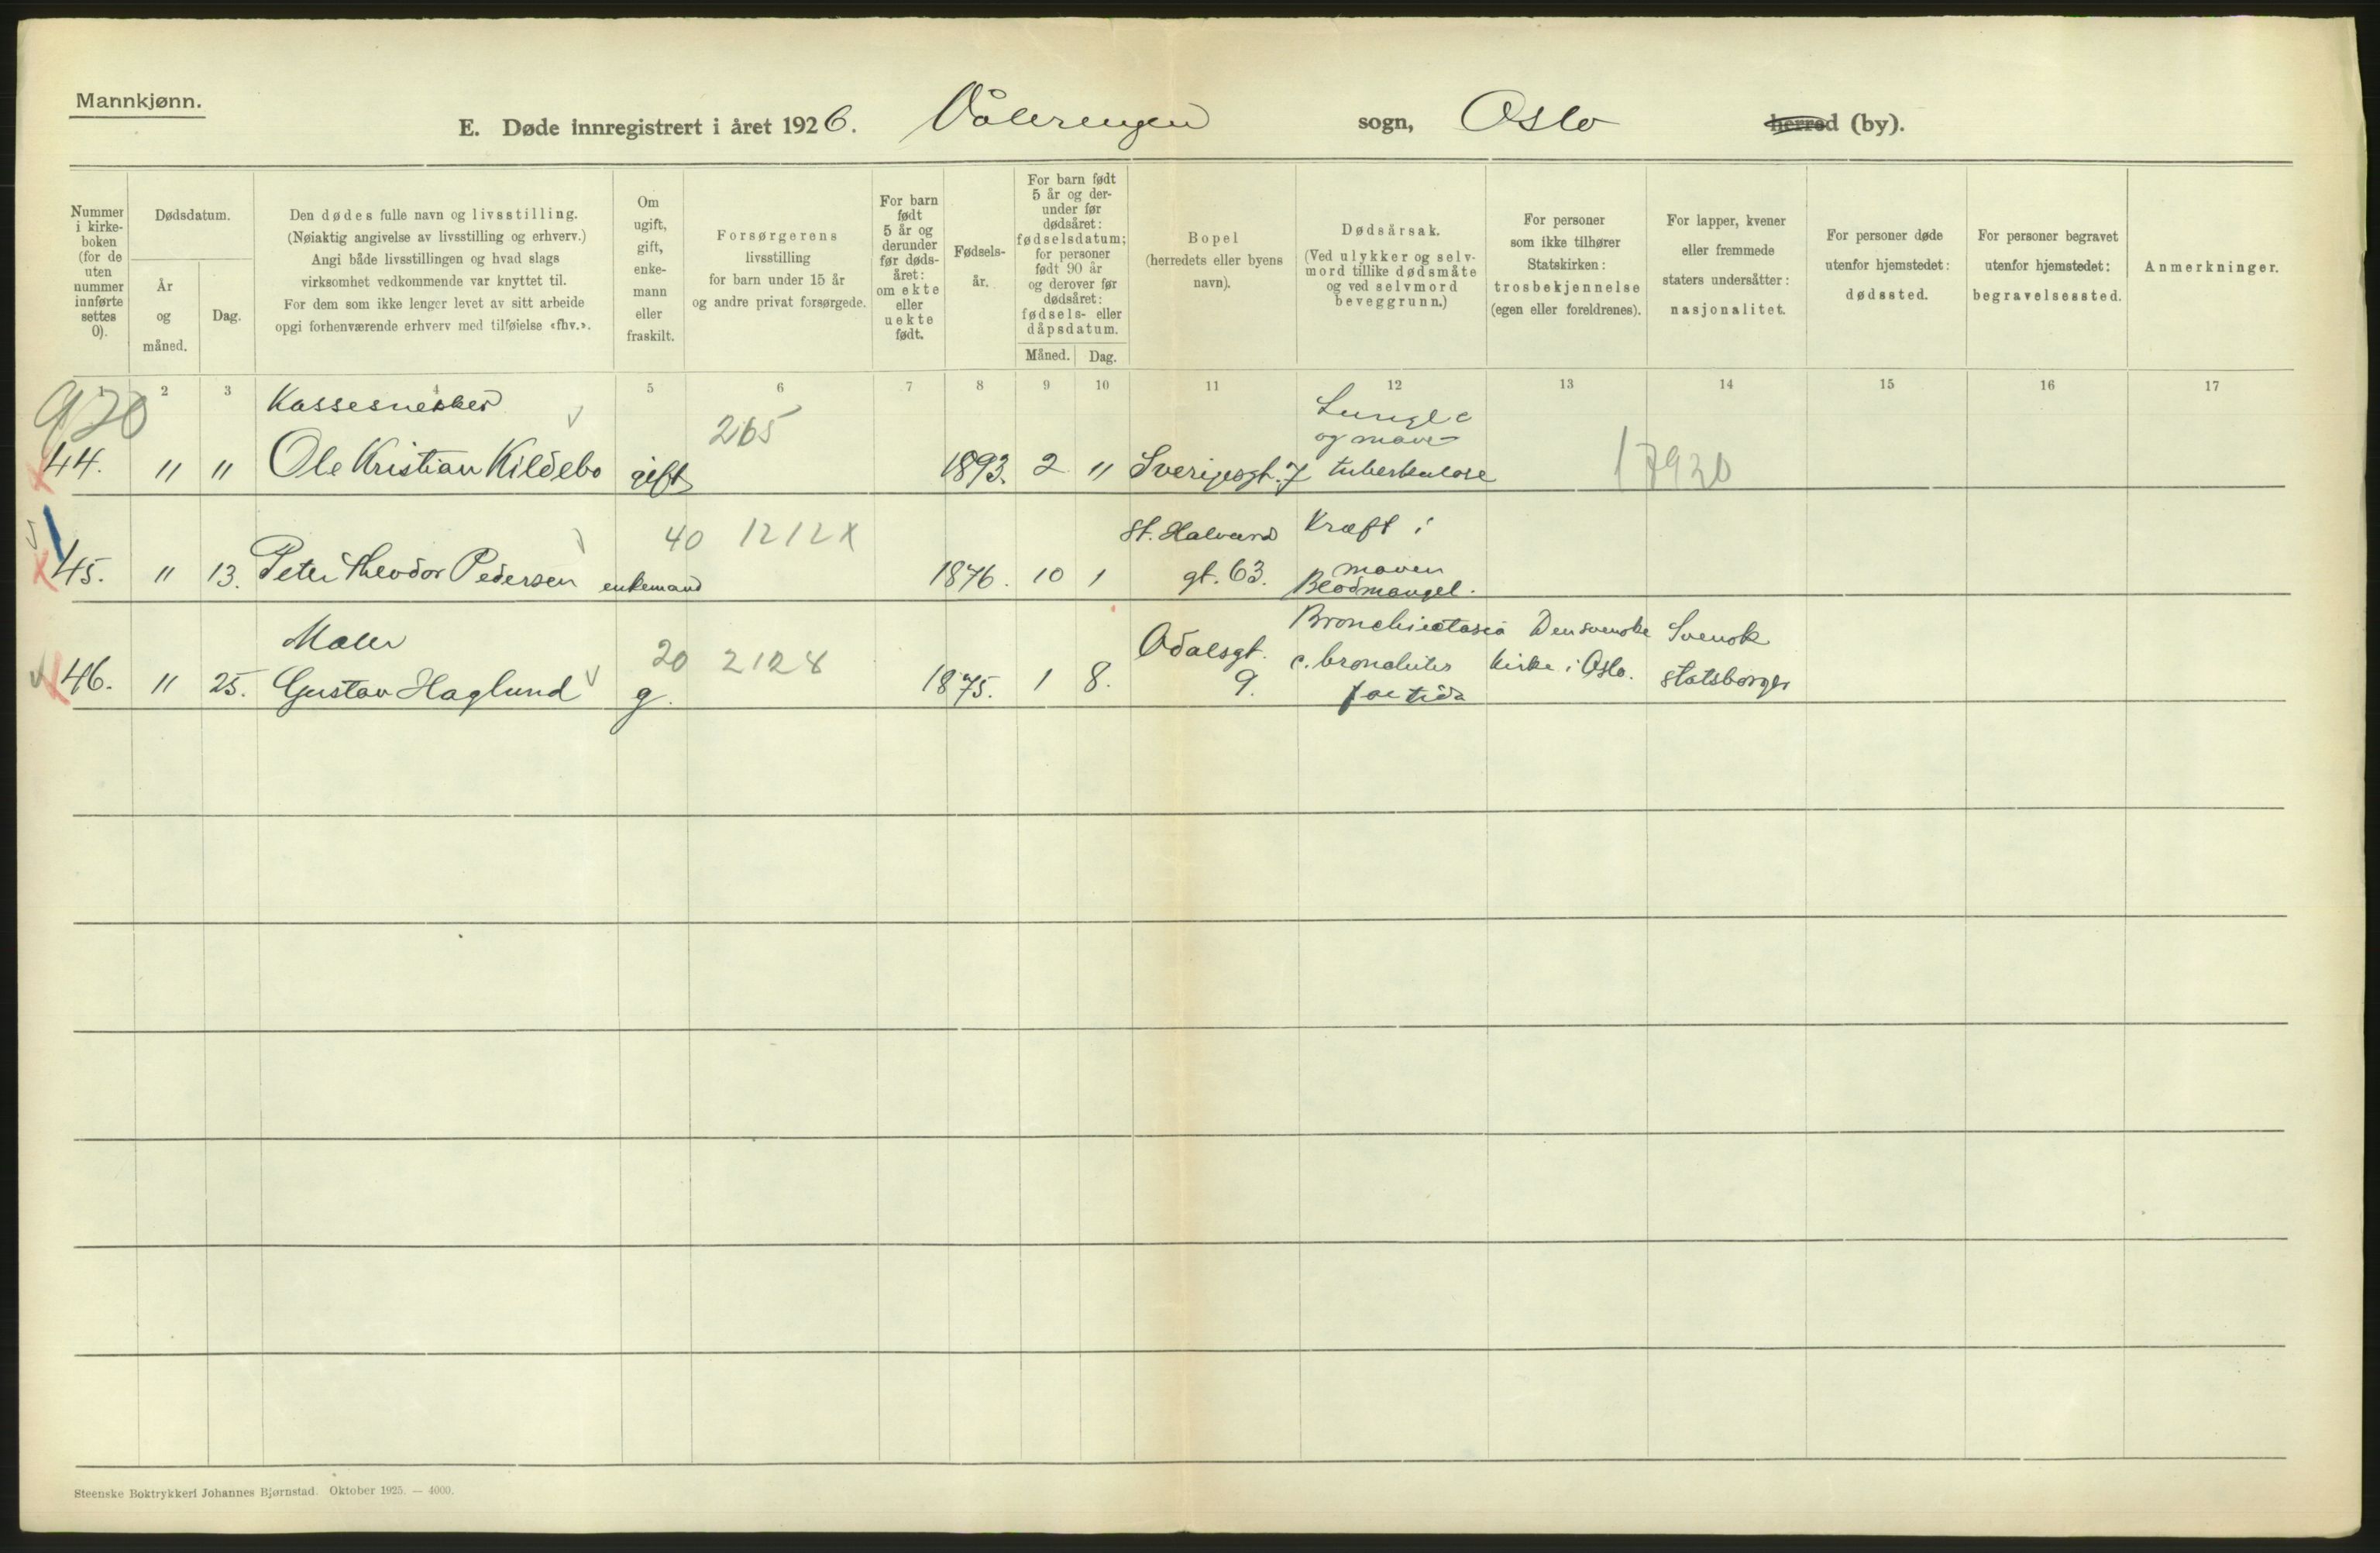 Mannkjønn.
E. Døde innregistrert i året 1926. Vålerengen sogn, Oslo herred (by).
Nummer i kirke-boken (for de uten nummer innførte settes 0).
Dødsdatum.
År og måned.
Dag.
Den dødes fulle navn og livsstilling.
(Nøiaktig angivelse av livsstilling og erhverv.)
Angi både livsstillingen og hvad slags
virksomhet vedkommende var knyttet til.
For dem som ikke lenger levet av sitt arbeide
opgi forhenværende erhverv med tilføielse «fhv.».
Om ugift, gift, enke-mann eller fraskilt.
Forsørgerens
livsstilling
for barn under 15 år
og andre privat forsørgede.
For barn født 5 år og derunder før døds-året: om ekte eller uekte født.
Fødsels-år.
For barn født 5 år og der-under før dødsåret: fødselsdatum; for personer født 90 år og derover før dødsåret: fødsels- eller dåpsdatum.
Måned. Dag.
Bopel
(herredets eller byens
navn).
Dødsårsak.
(Ved ulykker og selv-
mord tillike dødsmåte
og ved selvmord
beveggrunn.)
For personer
som ikke tilhører
Statskirken:
trosbekjennelse
(egen eller foreldrenes).
For lapper, kvener
eller fremmede
staters undersåtter:
nasjonalitet.
For personer døde
utenfor hjemstedet:
dødssted.
For personer begravet
utenfor hjemstedet:
begravelsessted.
Anmerkninger.
1 2 3 4 5 6 7 8 9 10 11 12 13 14 15 16 17
920
Kassesnekker
265
Lunge
og mave-
44. " " Ole Kristian Kildebo gift 1893. 2 " Sverigesgt. 7 tuberkulose 17920
40 1212X
St. Halvard Kræft i
maven
45. " 13. Peter Theodor Pedersen enkemand 1876. 10 1 gt. 63. Blodmangel.
Maler 20 2128 Odalsgt. Bronchiectasia Den svenske Svensk
c. bronchitis kirke i Oslo. statsborger
46. " 25. Gustav Haglund g. 1875. 1 8. 9. foetida
Steenske Boktrykkeri Johannes Bjørnstad. Oktober 1925. — 4000.